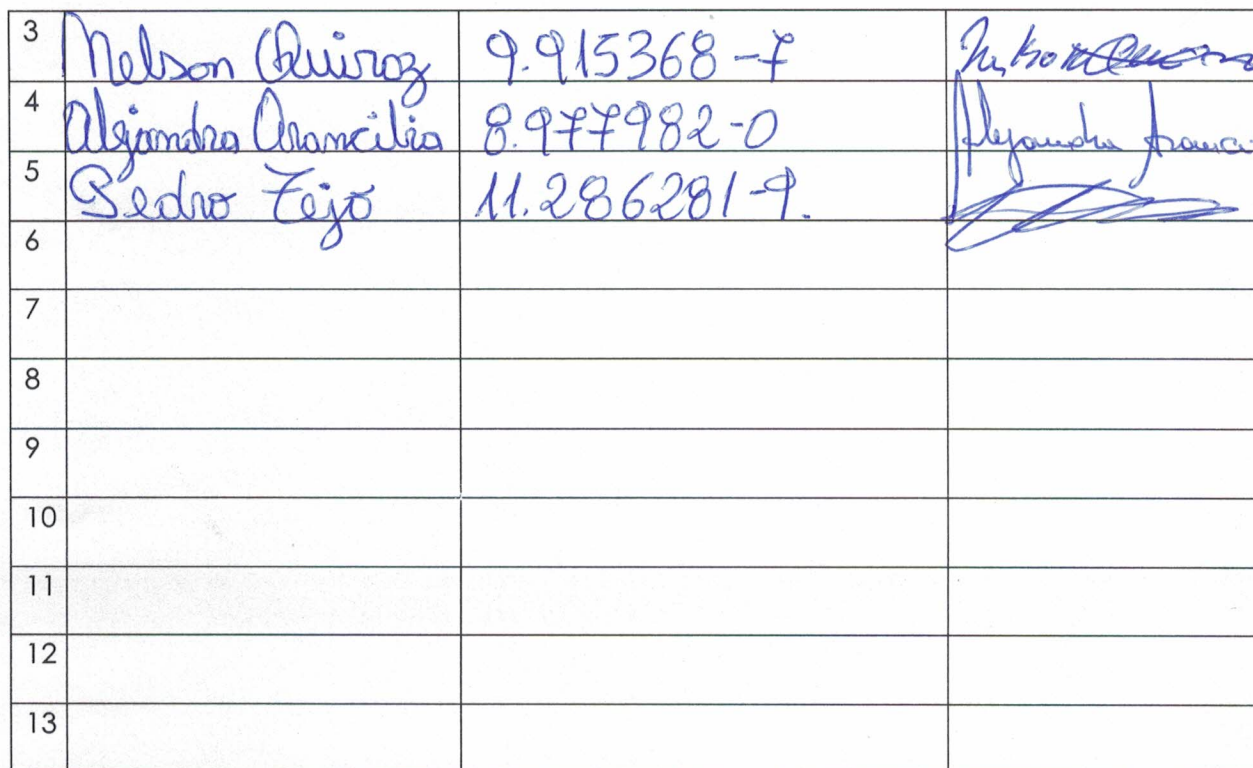 3 Nelson Quiroz 9.915368-7
4 Alejandra Arancibia 8.977982-0 Alejandra Aranci
5 Pedro Tejo 11.286281-9.
6
7
8
9
10
11
12
13